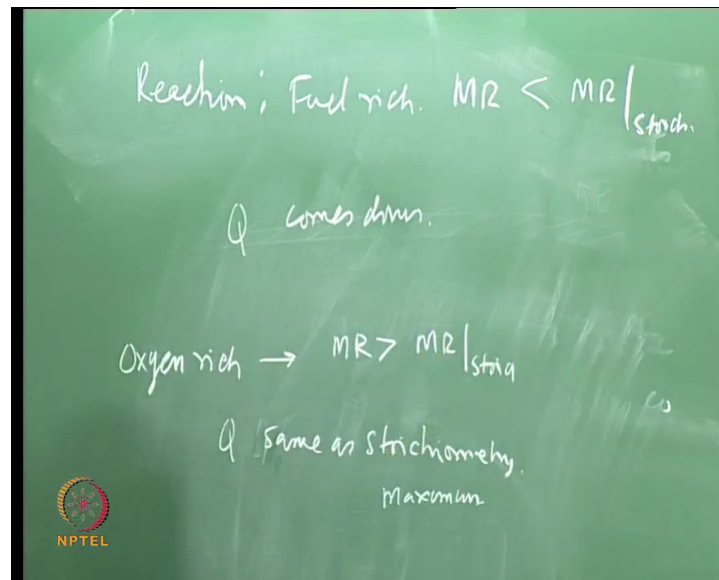 Reaction; Fuel rich. MR < MR|stoich.
Q comes down.
Oxygen rich → MR > MR|stoiq
Q same as Stoichiometry.
Maximum
co
NPTEL